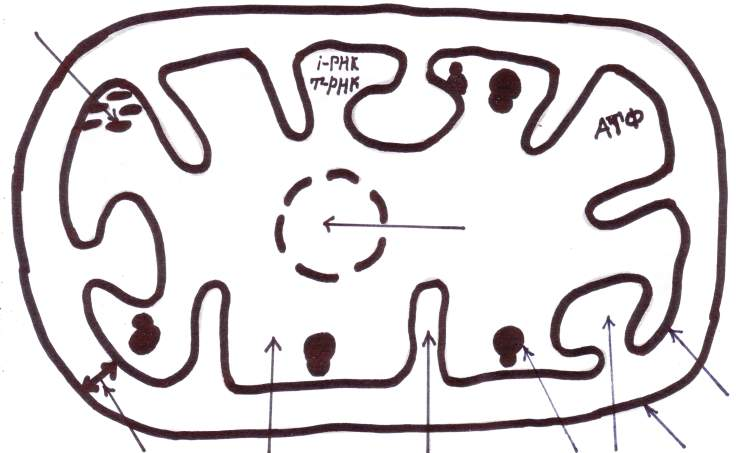 і-РНК
т-РНК
АТФ